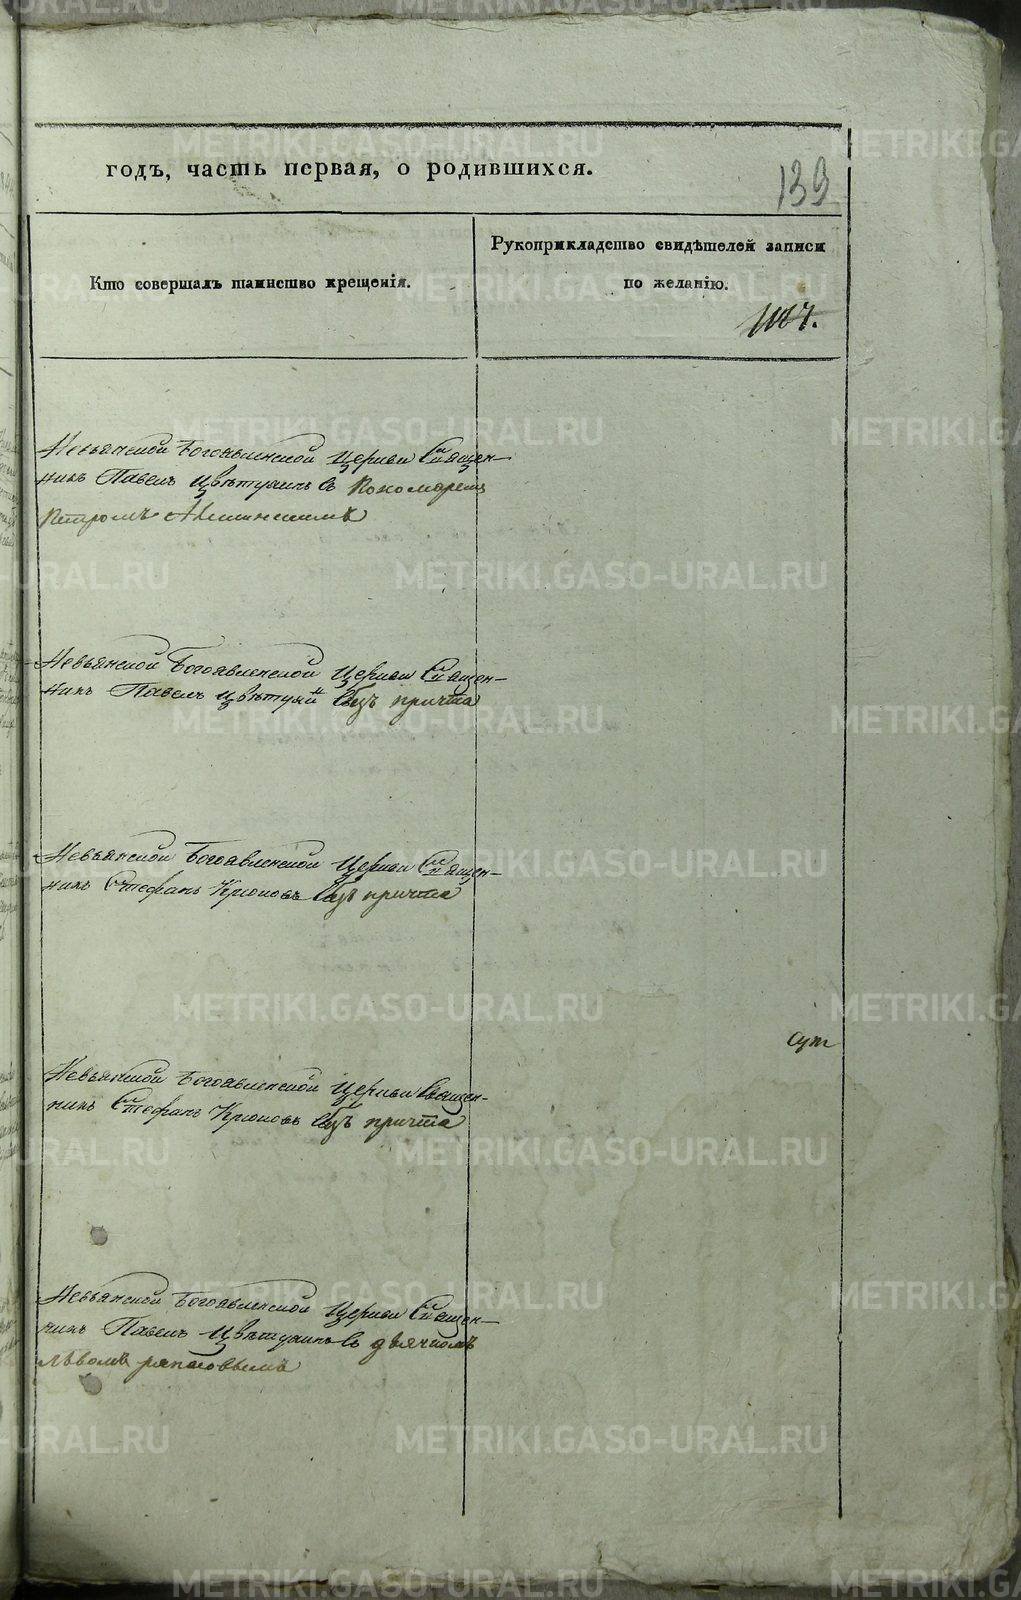 годъ, часть первая, о родившихся.
139
Кто совершалъ таинство крещенія.
Рукоприкладство свидѣтелей записи
по желанію.
Невьянской Богоявленской Церкви Священ-
никъ Павелъ Цвѣтухинъ съ Пономаремъ
Петромъ
Невьянской Богоявленской Церкви Священ-
никъ Павелъ безъ причта
Невьянской Богоявленской Церкви Священ-
никъ Стефанъ Крюковъ безъ причта
Невьянской Богоявленской Церкви Священ-
никъ Стефанъ Крюковъ безъ причта
Невьянской Богоявленской Церкви Священ-
никъ Павелъ Цвѣтухинъ съ дьячкомъ
Львомъ
METRIKI.GASO-URAL.RU